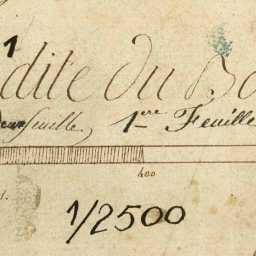 1
dite du Bo
feuille, 1ere Feuille
400
1/2500